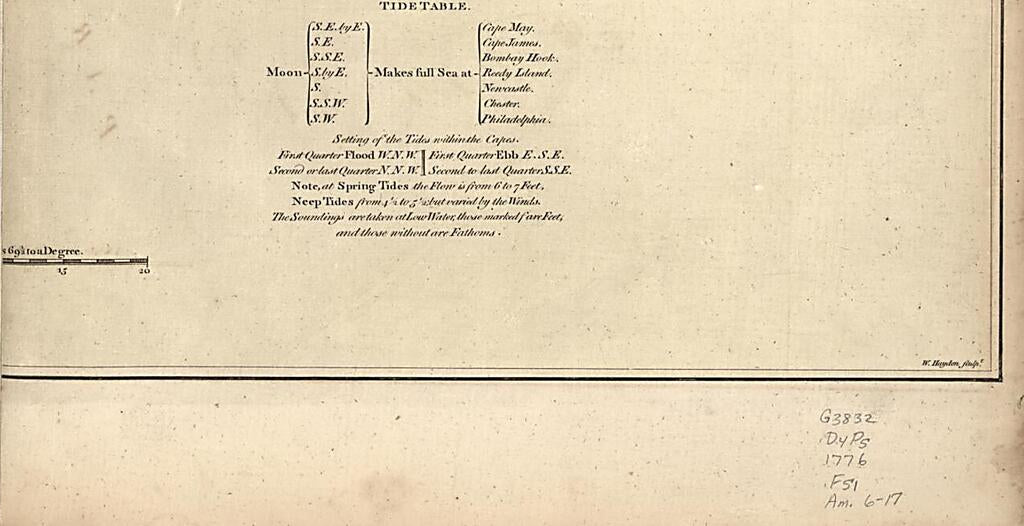 TIDE TABLE.
S.E. by E. Cape May.
S.E. Cape James.
S.S.E. Bombay Hook.
Moon S. by E. Makes full Sea at Reedy Island.
S. Newcastle.
S.S.W. Chester.
S.W. Philadelphia.
Setting of the Tides within the Capes.
First Quarter Flood W.N.W. First Quarter Ebb E.S.E.
Second or last Quarter N.N.W. Second to last Quarter S.S.E.
Note, at Spring Tides the Flow is from 6 to 7 Feet,
Neep Tides from 4½ to 5½, but varied by the Winds.
The Soundings are taken at Low Water, those marked f are Feet,
and those without are Fathoms.
s 69½ to a Degree.
15 20
W. Haydon, sculpt.
G3832
.D4P5
1776
.F51
Am. 6-17